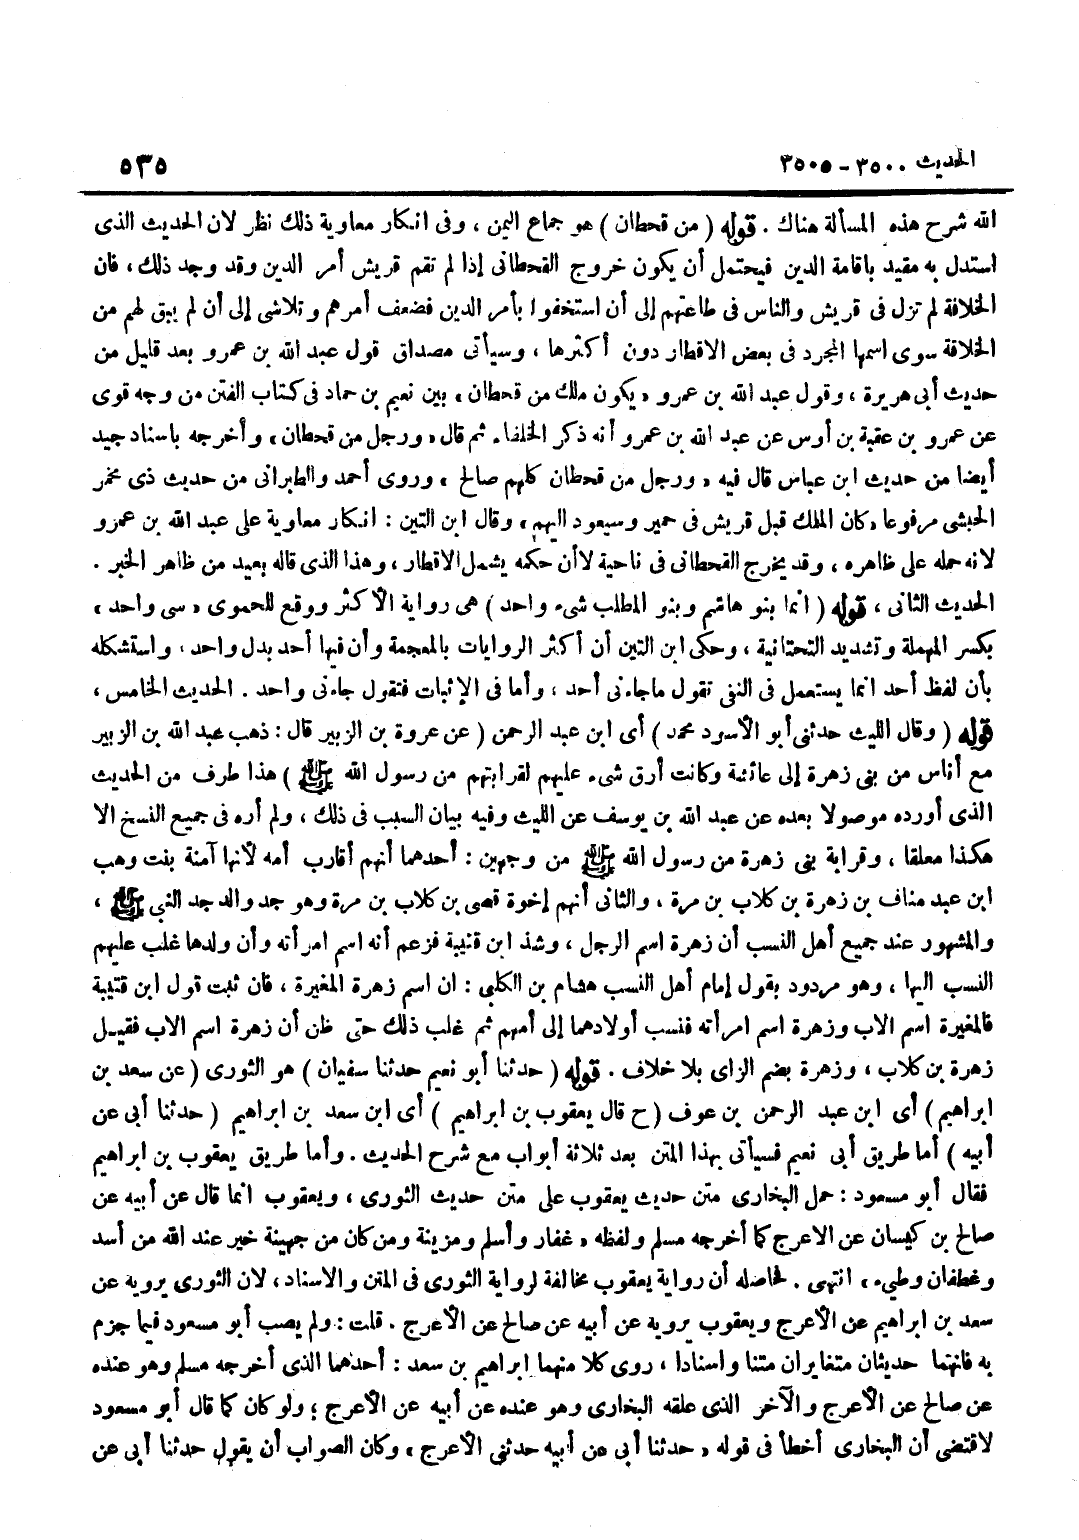 الحديث ٣٥٠٠ - ٣٥٠٥
٥٣٥
الله شرح هذه المسألة هناك . قوله ( من قحطان ) هو جماع اليمن ، وفى انكار معاوية ذلك نظر لان الحديث الذى
استدل به مقيد باقامة الدين فيحتمل أن يكون خروج القحطانى إذا لم تقم قريش أمر الدين وقد وجد ذلك ، فان
الخلافة لم تزل فى قريش والناس فى طاعتهم إلى أن استخفوا بأمر الدين فضعف أمرهم وتلاشى إلى أن لم يبق لهم من
الخلافة سوى اسمها المجرد فى بعض الاقطار دون أكثرها ، وسيأتى مصداق قول عبد الله بن عمرو بعد قليل من
حديث أبى هريرة ، وقول عبد الله بن عمرو « يكون ملك من قحطان » بين نعيم بن حماد فى كتاب الفتن من وجه قوى
عن عمرو بن عقبة بن أوس عن عبد الله بن عمرو أنه ذكر الخلفاء ثم قال « ورجل من قحطان » وأخرجه باسناد جيد
أيضا من حديث ابن عباس قال فيه « ورجل من قحطان كلهم صالح » وروى أحمد والطبرانى من حديث ذى مخمر
الحبشى مرفوعا « كان الملك قبل قريش فى حمير وسيعود اليهم » وقال ابن التين : انكار معاوية على عبد الله بن عمرو
لانه حمله على ظاهره ، وقد يخرج القحطانى فى ناحية لا أن حكمه يشمل الاقطار ، وهذا الذى قاله بعيد من ظاهر الخبر .
الحديث الثانى ، قوله ( انما بنو هاشم وبنو المطلب شىء واحد ) هى رواية الأكثر ووقع للحموى « سى واحد »
بكسر المهملة وتشديد التحتانية ، وحكى ابن التين أن أكثر الروايات بالمعجمة وأن فيها أحد بدل واحد ، واستشكله
بأن لفظ أحد انما يستعمل فى النفى تقول ماجاءنى أحد ، وأما فى الإثبات فتقول جاءنى واحد . الحديث الخامس ،
قوله ( وقال الليث حدثنى أبو الأسود محمد ) أى ابن عبد الرحمن ( عن عروة بن الزبير قال : ذهب عبد الله بن الزبير
مع أناس من بنى زهرة إلى عائشة وكانت أرق شىء عليهم لقرابتهم من رسول الله ﷺ ) هذا طرف من الحديث
الذى أورده موصولا بعده عن عبد الله بن يوسف عن الليث وفيه بيان السبب فى ذلك ، ولم أره فى جميع النسخ الا
هكذا معلقا ، وقرابة بنى زهرة من رسول الله ﷺ من وجهين : أحدهما أنهم أقارب أمه لأنها آمنة بنت وهب
ابن عبد مناف بن زهرة بن كلاب بن مرة ، والثانى أنهم إخوة قصى بن كلاب بن مرة وهو جد والد جد النبى ﷺ ،
والمشهور عند جميع أهل النسب أن زهرة اسم الرجل ، وشذ ابن قتيبة فزعم أنه اسم امرأته وأن ولدها غلب عليهم
النسب اليها ، وهو مردود بقول إمام أهل النسب هشام بن الكلبى : ان اسم زهرة المغيرة ، فان ثبت قول ابن قتيبة
فالمغيرة اسم الاب وزهرة اسم امرأته فنسب أولادهما إلى أمهم ثم غلب ذلك حتى ظن أن زهرة اسم الاب فقيل
زهرة بن كلاب ، وزهرة بضم الزاى بلا خلاف . قوله ( حدثنا أبو نعيم حدثنا سفيان ) هو الثورى ( عن سعد بن
ابراهيم ) أى ابن عبد الرحمن بن عوف ( ح قال يعقوب بن ابراهيم ) أى ابن سعد بن ابراهيم ( حدثنا أبى عن
أبيه ) أما طريق أبى نعيم فسيأتى بهذا المتن بعد ثلاثة أبواب مع شرح الحديث . وأما طريق يعقوب بن ابراهيم
فقال أبو مسعود : حمل البخارى متن حديث يعقوب على متن حديث الثورى ، ويعقوب انما قال عن أبيه عن
صالح بن كيسان عن الاعرج كما أخرجه مسلم ولفظه « غفار وأسلم ومزينة ومن كان من جهينة خير عند الله من أسد
وغطفان وطىء » انتهى . فحاصله أن رواية يعقوب مخالفة لرواية الثورى فى المتن والاسناد ، لان الثورى يرويه عن
سعد بن ابراهيم عن الأعرج ويعقوب يرويه عن أبيه عن صالح عن الأعرج . قلت : ولم يصب أبو مسعود فيما جزم
به فانهما حديثان متغايران متنا واسنادا ، روى كلا منهما ابراهيم بن سعد : أحدهما الذى أخرجه مسلم وهو عنده
عن صالح عن الأعرج والآخر الذى علقه البخارى وهو عنده عن أبيه عن الأعرج ؛ ولو كان كما قال أبو مسعود
لاقتضى أن البخارى أخطأ فى قوله « حدثنا أبى عن أبيه حدثنى الأعرج » وكان الصواب أن يقول حدثنا أبى عن